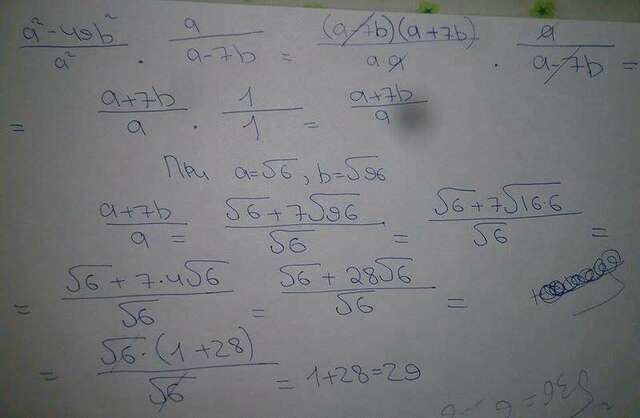 (a² - 49b²)/a² · a/(a-7b) = ((a-7b)(a+7b))/(a a) · a/(a-7b) =
= (a+7b)/a · 1/1 = (a+7b)/a
При a=√6, b=√96
(a+7b)/a = (√6+7√96)/√6 = (√6+7√(16·6))/√6 =
= (√6+7·4√6)/√6 = (√6+28√6)/√6 =
= (√6·(1+28))/√6 = 1+28=29